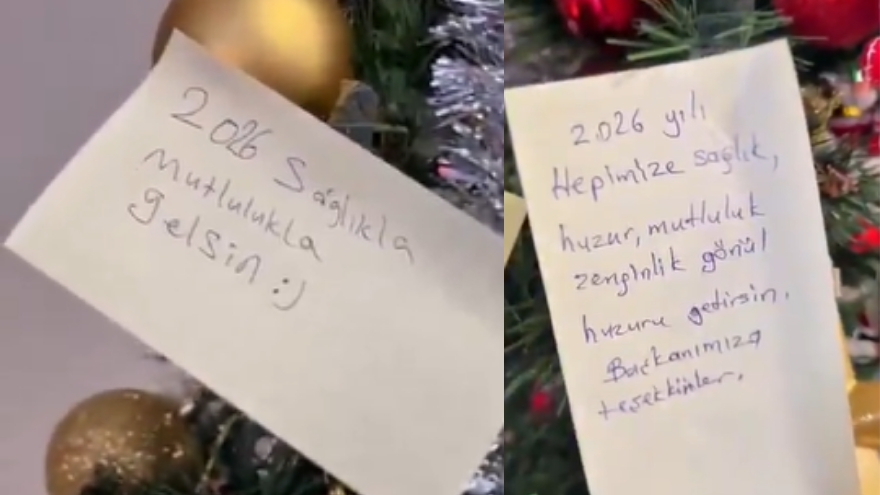 2026 Sağlıkla
Mutlulukla
gelsin :)
2026 yılı
Hepimize sağlık,
huzur, mutluluk
zenginlik gönül
huzuru getirsin.
Başkanımıza
teşekkürler.